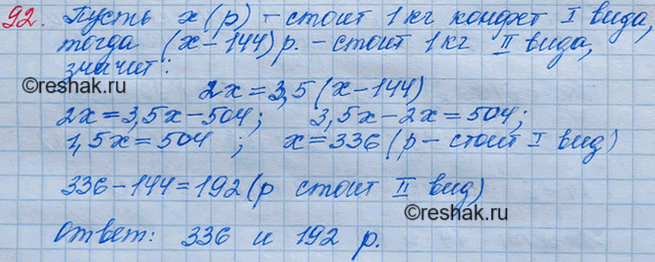 92. Пусть x (р) - стоит 1 кг конфет I вида,
тогда (x-144) р. - стоит 1 кг II вида,
значит:
2x=3,5(x-144)
2x=3,5x-504; 3,5x-2x=504;
1,5x=504 ; x=336 (р - стоит I вид)
336-144=192 (р стоит II вид)
Ответ: 336 и 192 р.
©reshak.ru
©reshak.ru